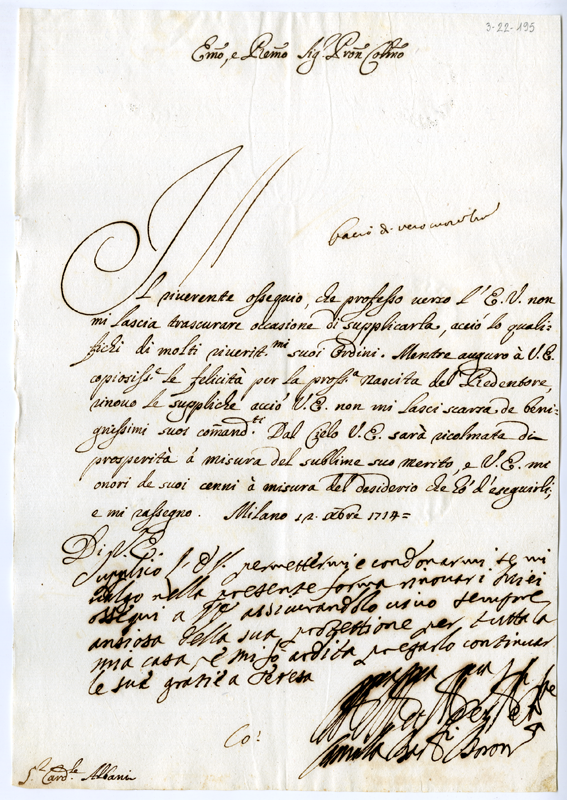 3-22-195
Emo, e Remo Sig.r Pron Colmo
Il riverente ossequio, che professo verso l'E. V. non
mi lascia trascurare ocasione di supplicarla, acciò lo quali-
fichi di molti riverit.mi suoi Ordini. Mentre auguro à V. E.
copiosiss.e le felicità per la pross.a nascita del Redentore,
rinovo le suppliche acciò V. E. non mi lasci scarsa de beni-
gnissimi suoi comand.ti Dal Cielo V. E. sarà ricolmata di
prosperità à misura del sublime suo merito, e V. E. me
onori de suoi cenni à misura del desiderio che hò d'eseguirli,
e mi rassegno. Milano 12. Xbre 1714=
Di V. E.
Suplico V. E. permettermi e condonarmi se mi
valgo nella presente forma rinovar i miei
ossequi a assicurandolo vivo sempre
ansiosa della sua protettione per tutta la
mia casa, e mi fo ardita pregarlo continuar
le sue gratie a Teresa
Co:
S.r Card.le Albani